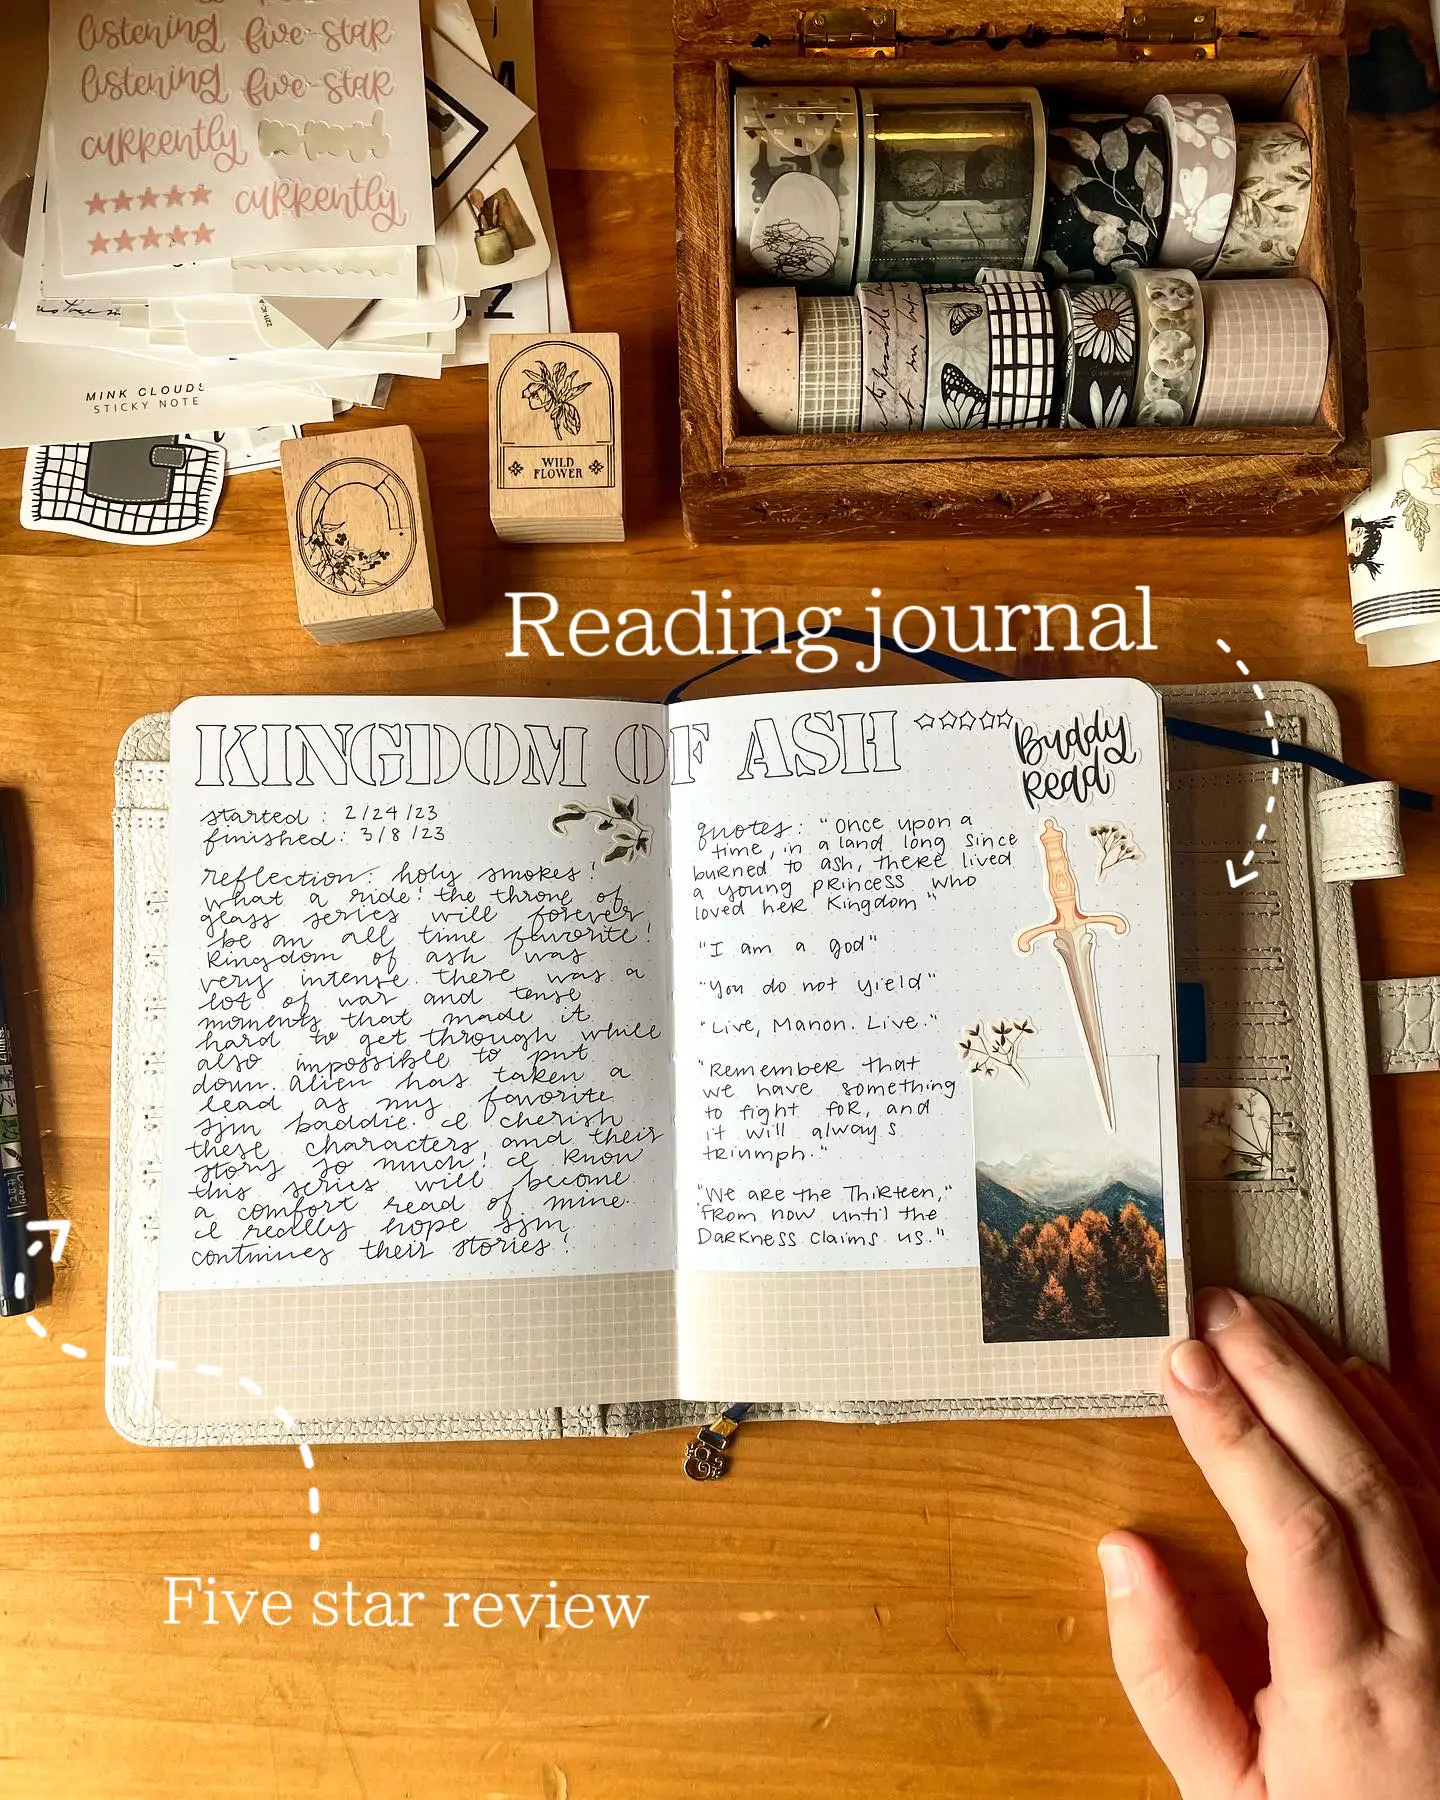 listening five-star
listening five-star
currently
currently
MINK CLOUDS
STICKY NOTE
WILD
FLOWER
Reading journal
KINGDOM OF ASH
Buddy
Read
started: 2/24/23
finished: 3/8/23
reflection: holy smokes!
what a ride! the throne of
glass series will forever
be an all time favorite!
Kingdom of ash was
very intense. there was a
lot of war and tense
moments that made it
hard to get through while
also impossible to put
down. Alien has taken a
lead as my favorite
sjm baddie. I cherish
these characters and their
story so much! I know
this series will become
a comfort read of mine.
I really hope sjm
continues their stories!
quotes: "Once upon a
time, in a land long since
burned to ash, there lived
a young princess who
loved her Kingdom"
"I am a god"
"You do not yield"
"Live, Manon. Live."
"Remember that
we have something
to fight for, and
it will always
triumph."
"We are the Thirteen,"
from now until the
Darkness claims us."
Five star review